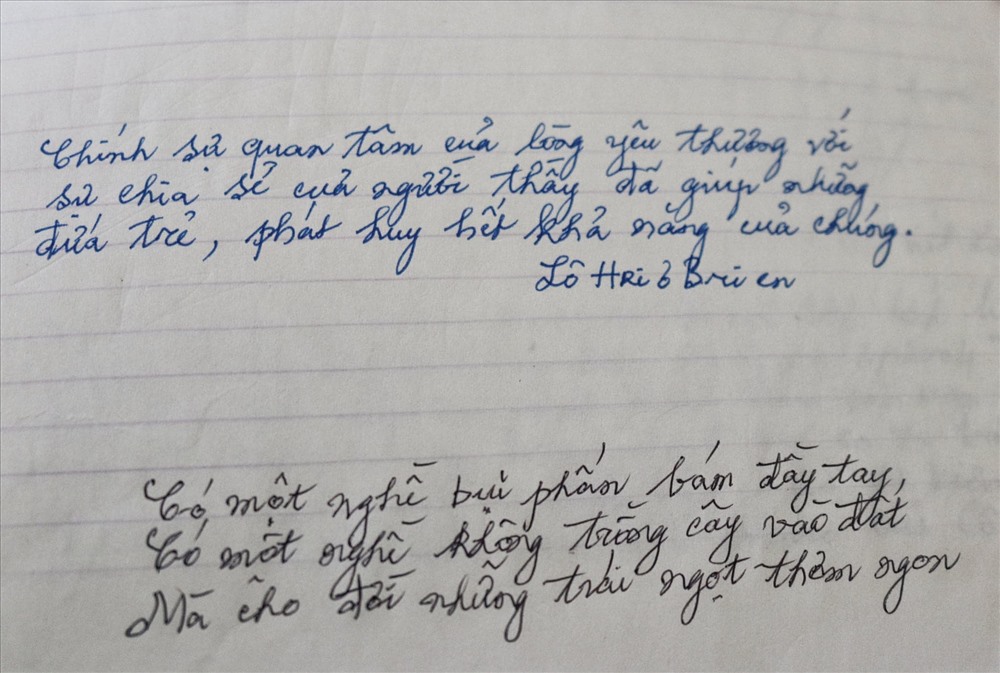 Chính sự quan tâm của lòng yêu thương với
sự chia sẻ của người thầy đã giúp những
đứa trẻ, phát huy hết khả năng của chúng.
Lô HRi ô Brii en
Có một nghề bụi phấn bám đầy tay,
Có một nghề không trồng cây vào đất
Mà cho đời những trái ngọt thơm ngon